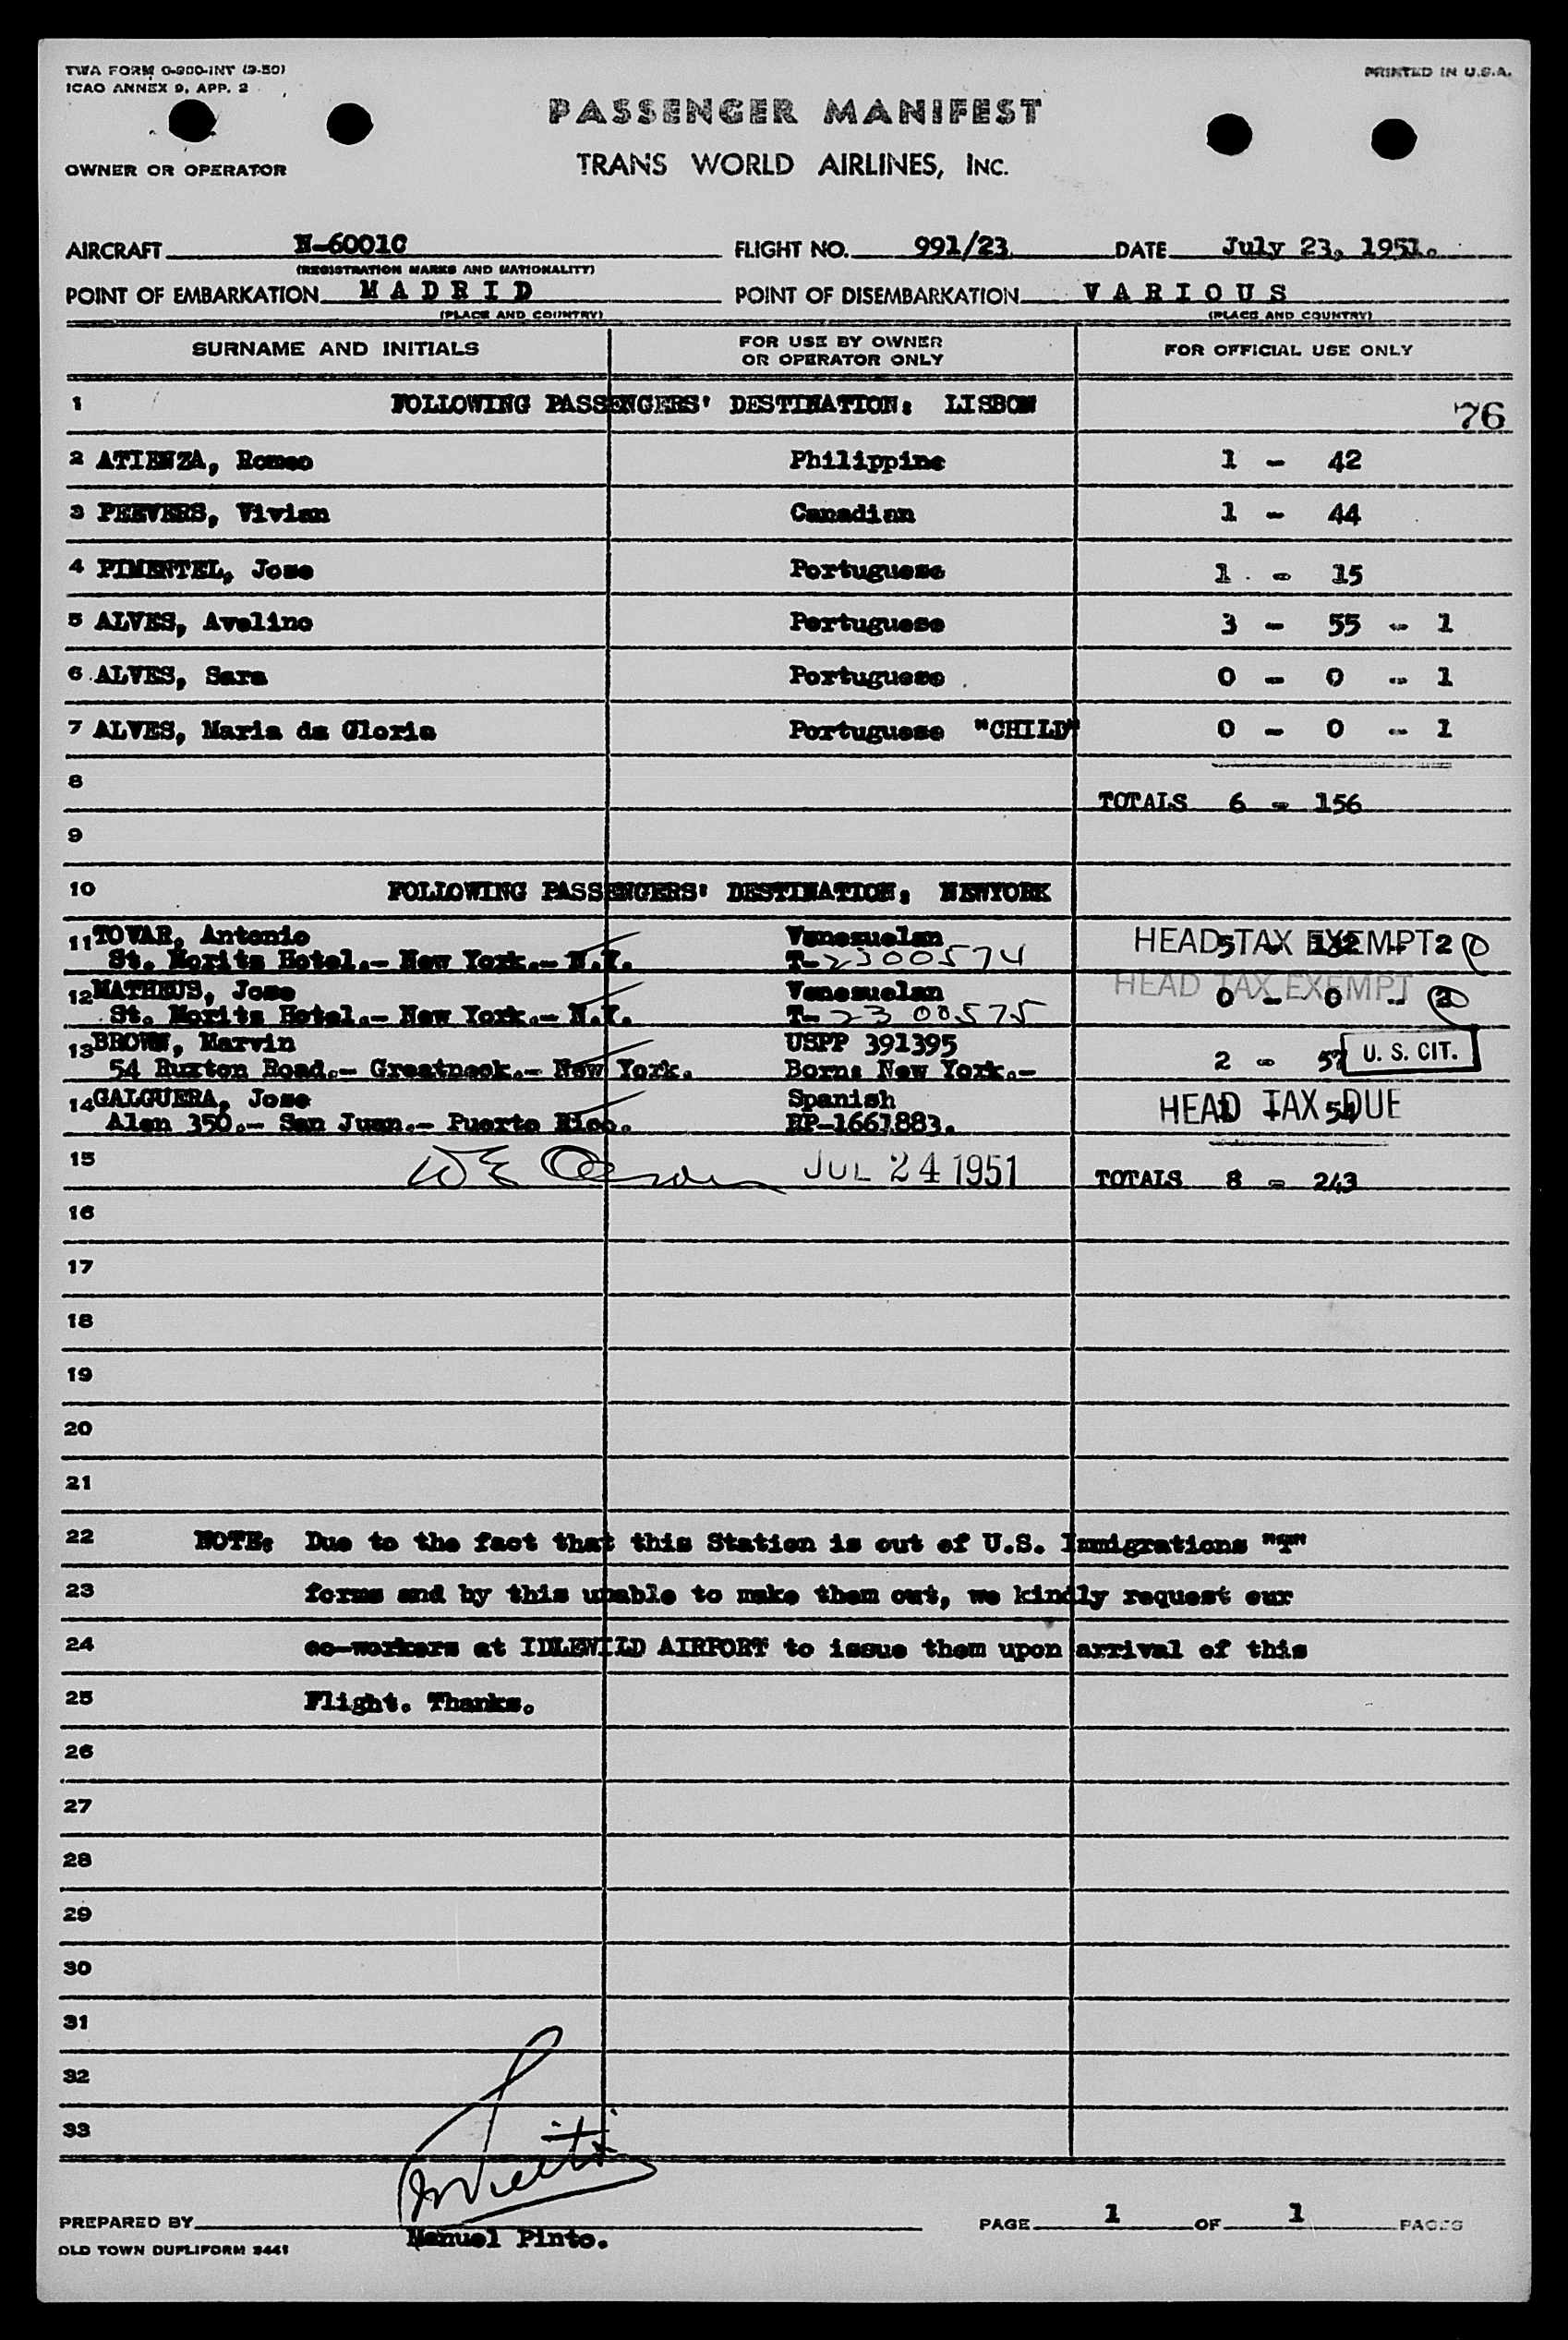 TWA FORM O-900-INT (9-50)
ICAO ANNEX 9, APP. 2
PRINTED IN U.S.A.
PASSENGER MANIFEST
OWNER OR OPERATOR
TRANS WORLD AIRLINES, INC.
AIRCRAFT N-6001C FLIGHT NO. 991/23 DATE July 23, 1951.
(REGISTRATION MARKS AND NATIONALITY)
POINT OF EMBARKATION M A D R I D POINT OF DISEMBARKATION V A R I O U S
(PLACE AND COUNTRY) (PLACE AND COUNTRY)
SURNAME AND INITIALS FOR USE BY OWNER OR OPERATOR ONLY FOR OFFICIAL USE ONLY
1 FOLLOWING PASSENGERS' DESTINATION: LISBON 76
2 ATIENZA, Romeo Philippine 1 - 42
3 PEEVERS, Vivian Canadian 1 - 44
4 PIMENTEL, Jose Portuguese 1 - 15
5 ALVES, Avelino Portuguese 3 - 55 - 1
6 ALVES, Sara Portuguese 0 - 0 - 1
7 ALVES, Maria da Gloria Portuguese "CHILD" 0 - 0 - 1
8 TOTALS 6 - 156
9
10 FOLLOWING PASSENGERS' DESTINATION: NEWYORK
11 TOVAR, Antonio Venezuelan HEAD TAX EXEMPT 5 - 132 - 2
St. Moritz Hotel.- New York.- N.Y. T-2300574
12 MATHEUS, Jose Venezuelan HEAD TAX EXEMPT 0 - 0 - 2
St. Moritz Hotel.- New York.- N.Y. T-2300575
13 BROWN, Marvin USPP 391395 2 - 57 U. S. CIT.
54 Ruxton Road.- Greatneck.- New York. Born: New York.-
14 GALGUERA, Jose Spanish HEAD TAX DUE 1 - 54
Alen 350.- San Juan.- Puerto Rico. RP-1661883.
15 JUL 24 1951 TOTALS 8 - 243
16
17
18
19
20
21
22 NOTE: Due to the fact that this Station is out of U.S. Immigrations "I"
23 forms and by this unable to make them out, we kindly request our
24 co-workers at IDLEWILD AIRPORT to issue them upon arrival of this
25 Flight. Thanks.
26
27
28
29
30
31
32
33
PREPARED BY Manuel Pinto. PAGE 1 OF 1 PAGES
OLD TOWN DUPLIFORM 9441